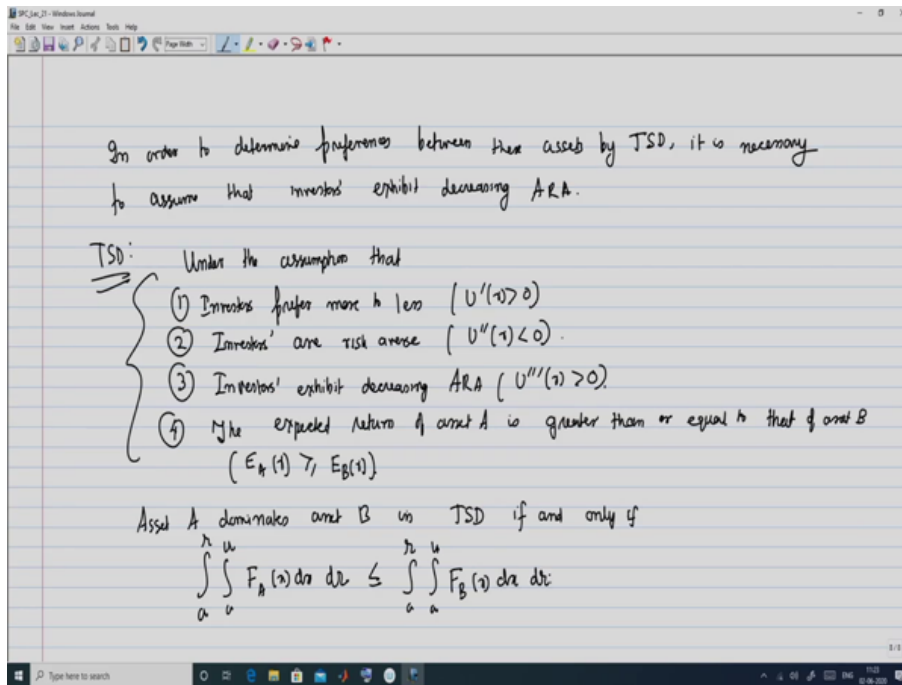 SPC_Lec_21 - Windows Journal
File Edit View Insert Actions Tools Help
Page Width
In order to determine preferences between these assets by TSD, it is necessary
to assume that investors' exhibit decreasing ARA.
TSD:
Under the assumption that
① Investors prefer more to less ( U'(r) > 0 )
② Investors' are risk averse ( U''(r) < 0 ).
③ Investors' exhibit decreasing ARA ( U'''(r) > 0 ).
④ The expected return of asset A is greater than or equal to that of asset B
( E_A(r) ≥ E_B(r) ).
Asset A dominates asset B in TSD if and only if
∫_a^r ∫_a^u F_A(x) dx dr ≤ ∫_a^r ∫_a^u F_B(x) dx dr
3/3
Type here to search
ENG
11:23
02-06-2020